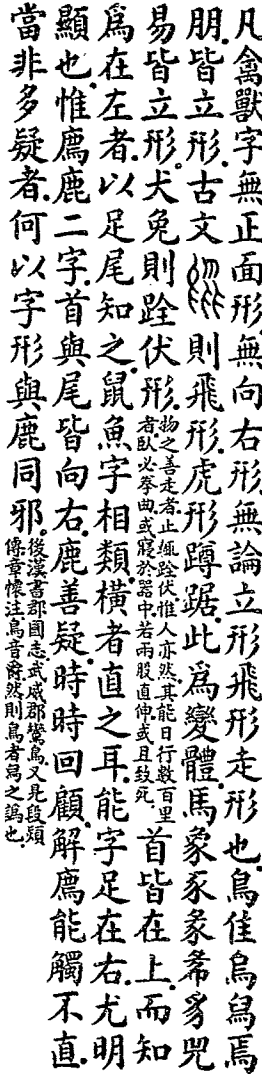 凡禽獸字無正面形.無向右形.無論立形飛形走形也.鳥隹烏舄焉
朋.皆立形.古文則飛形.虎形蹲踞.此爲變體.馬象豕彖豸兕
易皆立形.犬兔則跧伏形.物之善走者.止輒跧伏.惟人亦然.其能日行數百里者.臥必拳曲.或寢於器中.若兩股直伸.或且致死.首皆在上.而知
爲在左者.以足尾知之.鼠魚字相類.橫者直之耳.能字足在右.尤明
顯也.惟廌鹿二字.首與尾皆向右.鹿善疑.時時回顧.解廌能觸不直.
當非多疑者.何以字形與鹿同邪.後漢書郡國志.武威郡鸞鳥.又見段熲傳.章懷注.鳥音爵.然則鳥者舄之譌也.